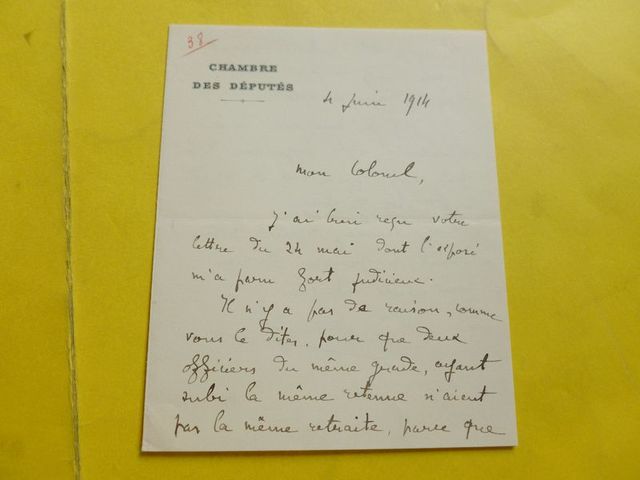 38
CHAMBRE
DES DÉPUTÉS
4 juin 1914
Mon Colonel,
J'ai bien reçu votre
lettre du 24 mai dont l'exposé
m'a paru fort judicieux.
Il n'y a pas de raison, comme
vous le dites, pour que deux
officiers du même grade, ayant
subi la même retenue n'aient
pas la même retraite, parce que